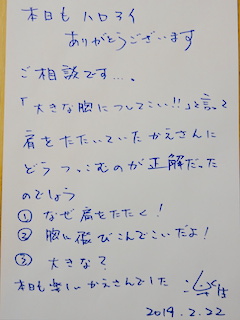 本日もハロマイ
ありがとうございます
ご相談です…、
「大きな胸につしてこい!!」と言って
肩をたたいていたかえさんに
どうつっこむのが正解だった
のでしょう
① なぜ肩をたたく!
② 胸に飛びこんでこいだよ!
③ 大きな?
本日も楽しいかえさんでした
2019.2.22